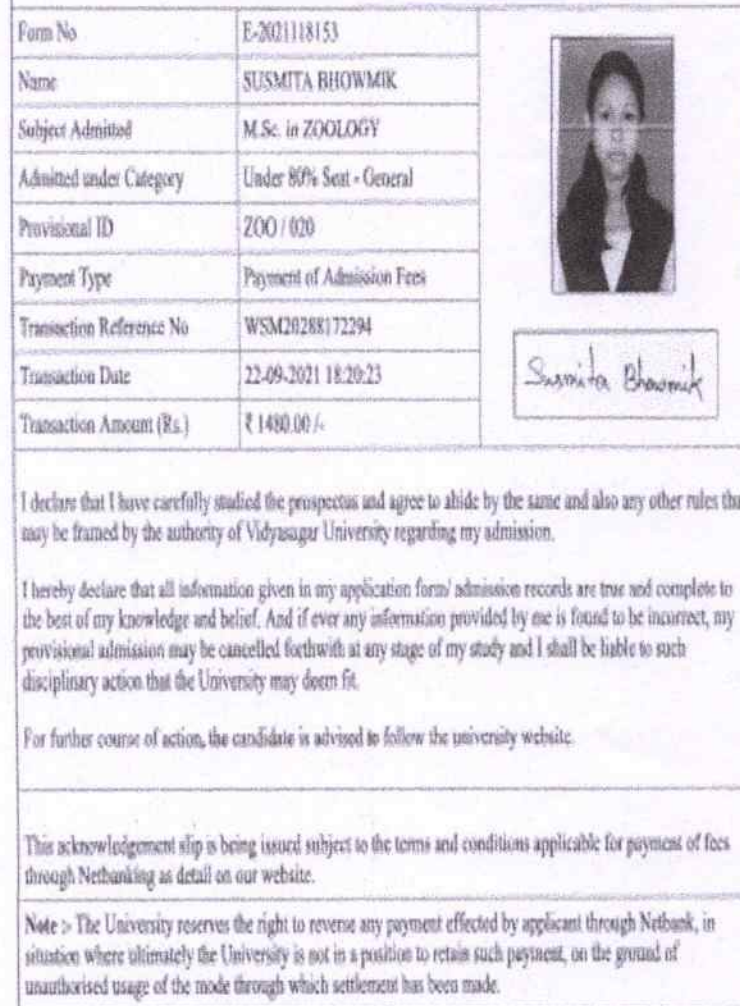 Form No E-2021118153
Name SUSMITA BHOWMIK
Subject Admitted M.Sc. in ZOOLOGY
Admitted under Category Under 80% Seat - General
Provisional ID ZOO / 020
Payment Type Payment of Admission Fees
Transaction Reference No WSM20288172294
Transaction Date 22-09-2021 18:20:23
Transaction Amount (Rs.) ₹ 1480.00 /-
Susmita Bhowmik
I declare that I have carefully studied the prospectus and agree to abide by the same and also any other rules tha
may be framed by the authority of Vidyasagar University regarding my admission.
I hereby declare that all information given in my application form/ admission records are true and complete to
the best of my knowledge and belief. And if ever any information provided by me is found to be incorrect, my
provisional admission may be cancelled forthwith at any stage of my study and I shall be liable to such
disciplinary action that the University may deem fit.
For further course of action, the candidate is advised to follow the university website.
This acknowledgement slip is being issued subject to the terms and conditions applicable for payment of fees
through Netbanking as detail on our website.
Note :- The University reserves the right to reverse any payment effected by applicant through Netbank, in
situation where ultimately the University is not in a position to retain such payment, on the ground of
unauthorised usage of the mode through which settlement has been made.